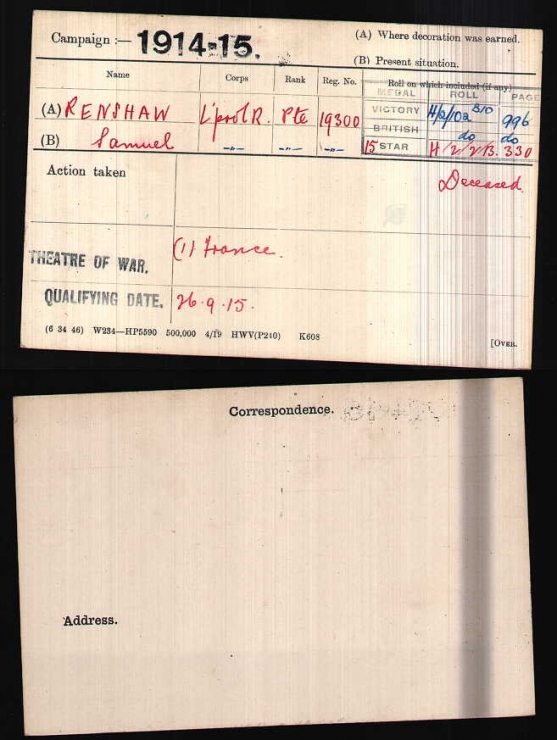 Campaign :— 1914-15.
(A) Where decoration was earned.
(B) Present situation.
Name Corps Rank Reg. No. Roll on which included (if any)
MEDAL ROLL PAGE
(A) RENSHAW L'pool R. Pte 19300
VICTORY H/2/102 B10 996
BRITISH do do
(B) Samuel -"- -"- -"-
15 STAR H/2/2B. 330
Action taken
Deceased.
THEATRE OF WAR. (1) France.
QUALIFYING DATE. 26.9.15.
(6 34 46) W234—HP5590 500,000 4/19 HWV(P240) K608
[OVER.
Correspondence.
Address.